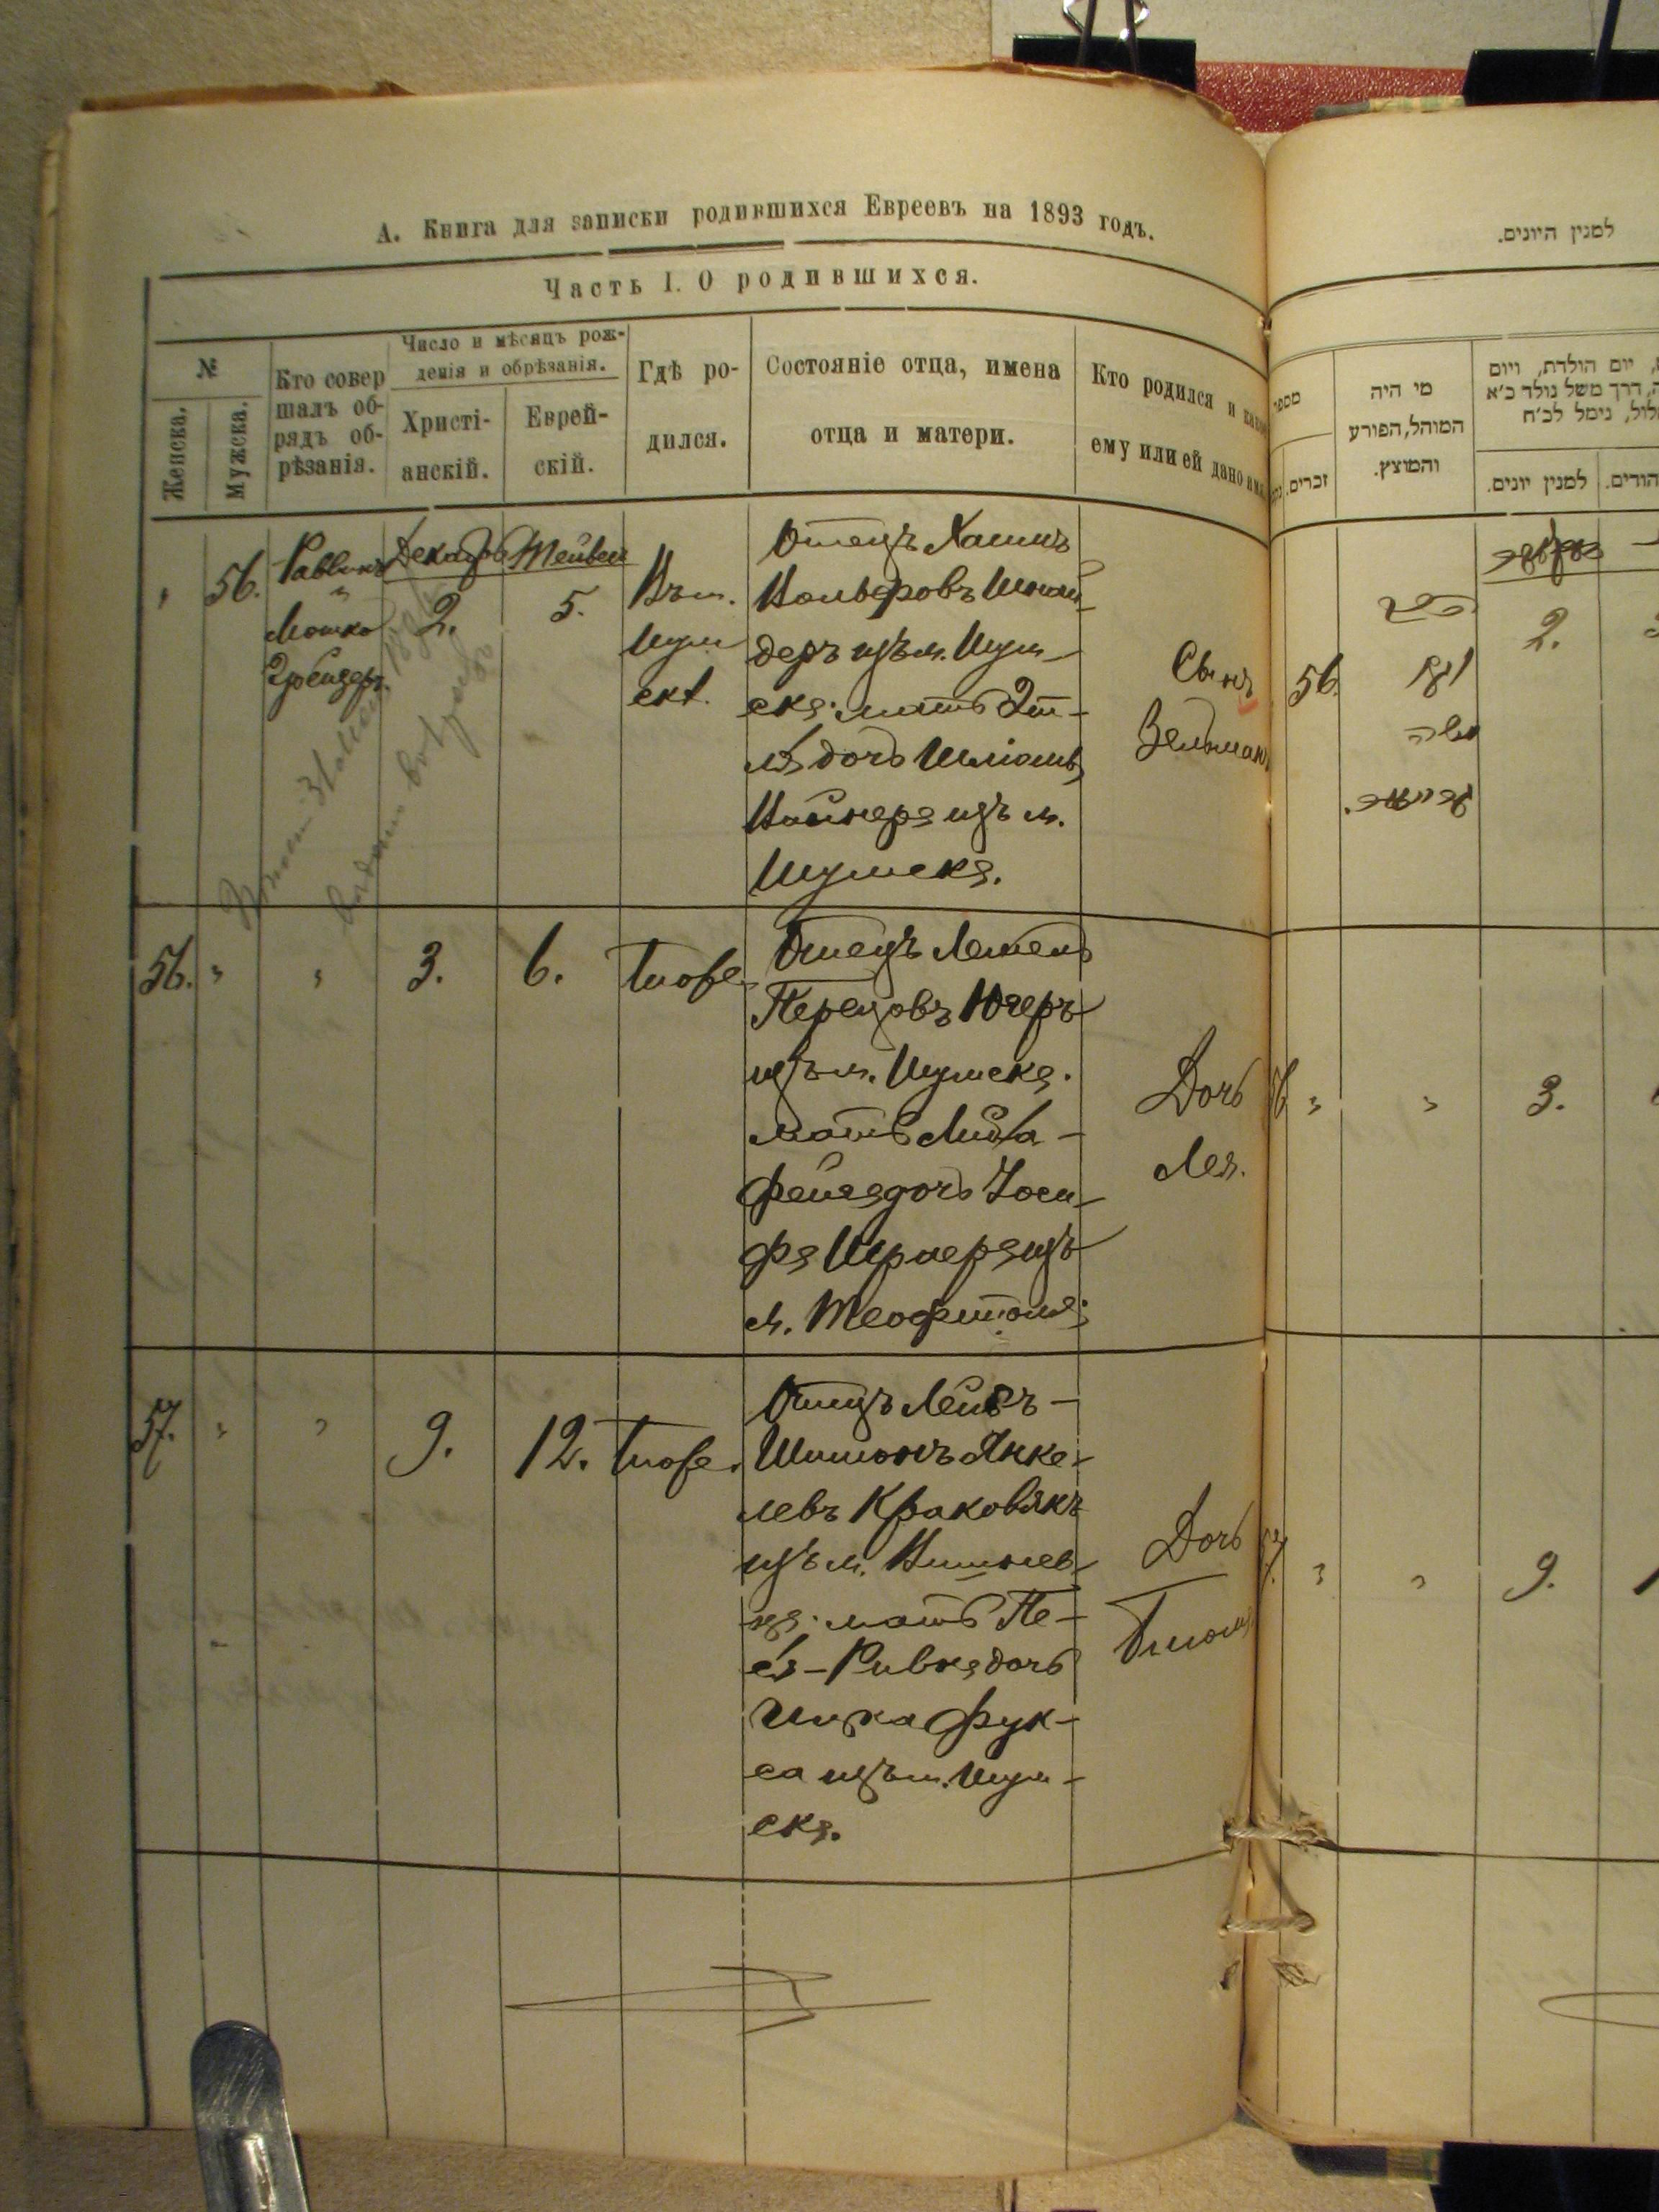 А. Книга для записки родившихся Евреевъ на 1893 годъ.
Часть I. О родившихся.
№
Женска.
Мужска.
Кто совер
шалъ об-
рядъ об-
рѣзанія.
Число и мѣсяцъ рож-
денія и обрѣзанія.
Христі-
анскій.
Еврей-
скій.
Гдѣ ро-
дился.
Состояніе отца, имена
отца и матери.
Кто родился и какое
ему или ей дано имя.
56.
Раввинъ
Мошко
Декабрь
2.
Тейвеш
5.
Въ м.
Шум
скѣ.
Отецъ Хаимъ
Вольфовъ Шнай-
деръ изъ м. Шум-
ска; мать Эт-
ля дочь Шліомы
Вайнера изъ м.
Шумска.
Сынъ
Зельман
56.
3.
6.
Тоже.
Отецъ Лейзеръ
Перецовъ Югеръ
изъ м. Шумска.
мать Либа-
Фейга дочь Іоси-
фа Шраера изъ
м. Теофиполя;
Дочь
Лея.
57.
9.
12.
Тоже.
Отецъ Лейбъ-
Шимонъ Янке-
левъ Краковякъ
изъ м. Вишнев-
ца; мать Пе-
ся-Ривка дочь
Ицка Фук-
са изъ м. Шум-
ска.
Дочь
למנין היונים.
מספר
זכרים.
מי היה
המוהל, הפורע
והמוצץ.
יום הולדת, ויום
דרך משל נולד כ״א
אלול, נימל לכ״ח
למנין יונים.
56.
הרב
משה
2.
56
3.
57.
9.